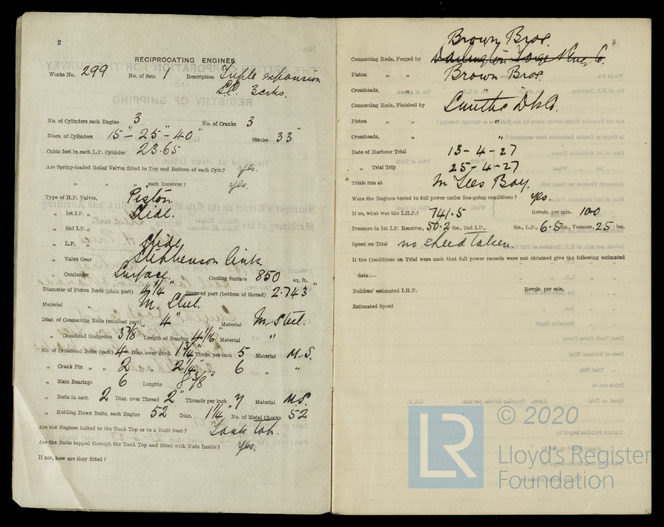 2
RECIPROCATING ENGINES.
Works No. 299 No. of Sets 1 Description Triple expansion
No. of Cylinders each Engine 3 No. of Cranks 3
Diars. of Cylinders 15" - 25 - 40" Stroke 33"
Cubic feet in each L.P. Cylinder 23.65
Are Spring-loaded Relief Valves fitted to Top and Bottom of each Cylr.? yes.
" " each Receiver? yes.
Type of H.P. Valves, Piston
" 1st I.P. " Slide.
" 2nd I.P. "
" L.P. " Slide
" Valve Gear Stephenson Link
" Condenser Surface Cooling Surface 850 sq. ft.
Diameter of Piston Rods (plain part) 4 1/4" Screwed part (bottom of thread) 2.743"
Material " M. Steel.
Diar. of Connecting Rods (smallest part) 4" Material M. Steel.
" Crosshead Gudgeons 3 7/8 Length of Bearing 4 7/16" Material "
No. of Crosshead Bolts (each) 4 Diar. over thrd. 1 3/4" Thrds. per inch 5 Material M.S.
" Crank Pin " " 2 " 2 1/4" " 6 " "
" Main Bearings 6 Lengths 8 3/8
" Bolts in each 2 Diar. over Thread 2" Threads per inch 7 Material M.S.
" Holding Down Bolts, each Engine 52 Diar. 1 1/4 No. of Metal Chocks 52
Are the Engines bolted to the Tank Top or to a Built Seat? Tank Top.
Are the Bolts tapped through the Tank Top and fitted with Nuts Inside? Yes.
If not, how are they fitted?
3
Brown Bros.
Connecting Rods, Forged by Darlington Forge
Piston " " Brown Bros.
Crossheads, " "
Connecting Rods, Finished by Smiths D Co
Piston " " "
Crossheads, " " "
Date of Harbour Trial 13-4-27
" Trial Trip 25-4-27
Trials run at In Tees Bay.
Were the Engines tested to full power under Sea-going conditions? yes.
If so, what was the I.H.P.? 741.5 Revols. per min. 100
Pressure in 1st I.P. Receiver, 50.2 lbs., 2nd I.P., lbs., L.P., 6.5 lbs., Vacuum, 25 ins.
Speed on Trial no speed taken.
If the Conditions on Trial were such that full power records were not obtained give the following estimated
data:—
Builders' estimated I.H.P. Revols. per min.
Estimated Speed
© 2020
LR
Lloyd's Register
Foundation